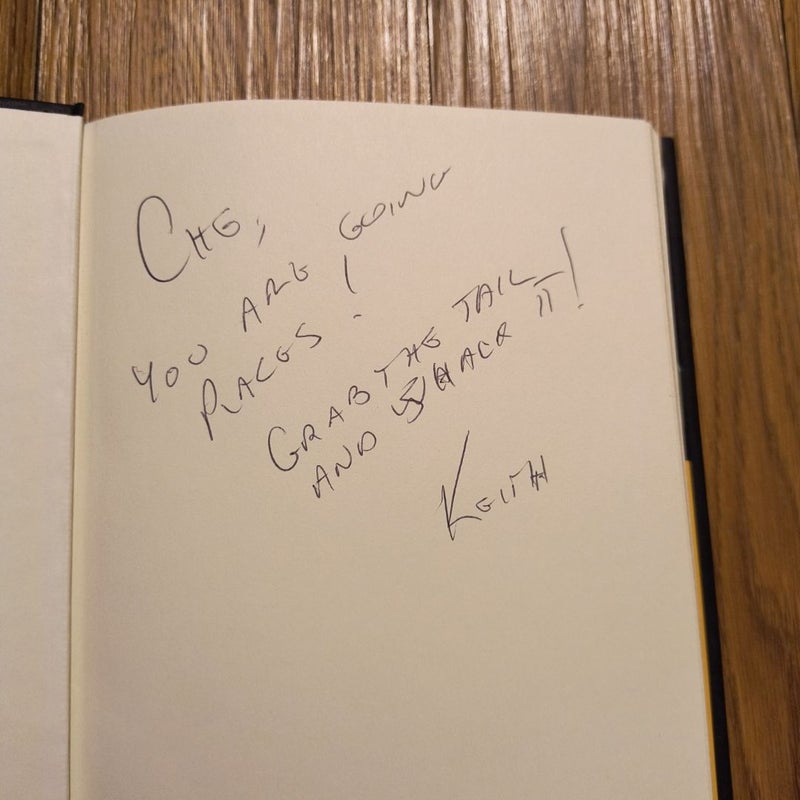 CHE,
YOU ARE GOING
PLACES!
GRAB THE TAIL
AND WHACK IT!
KEITH